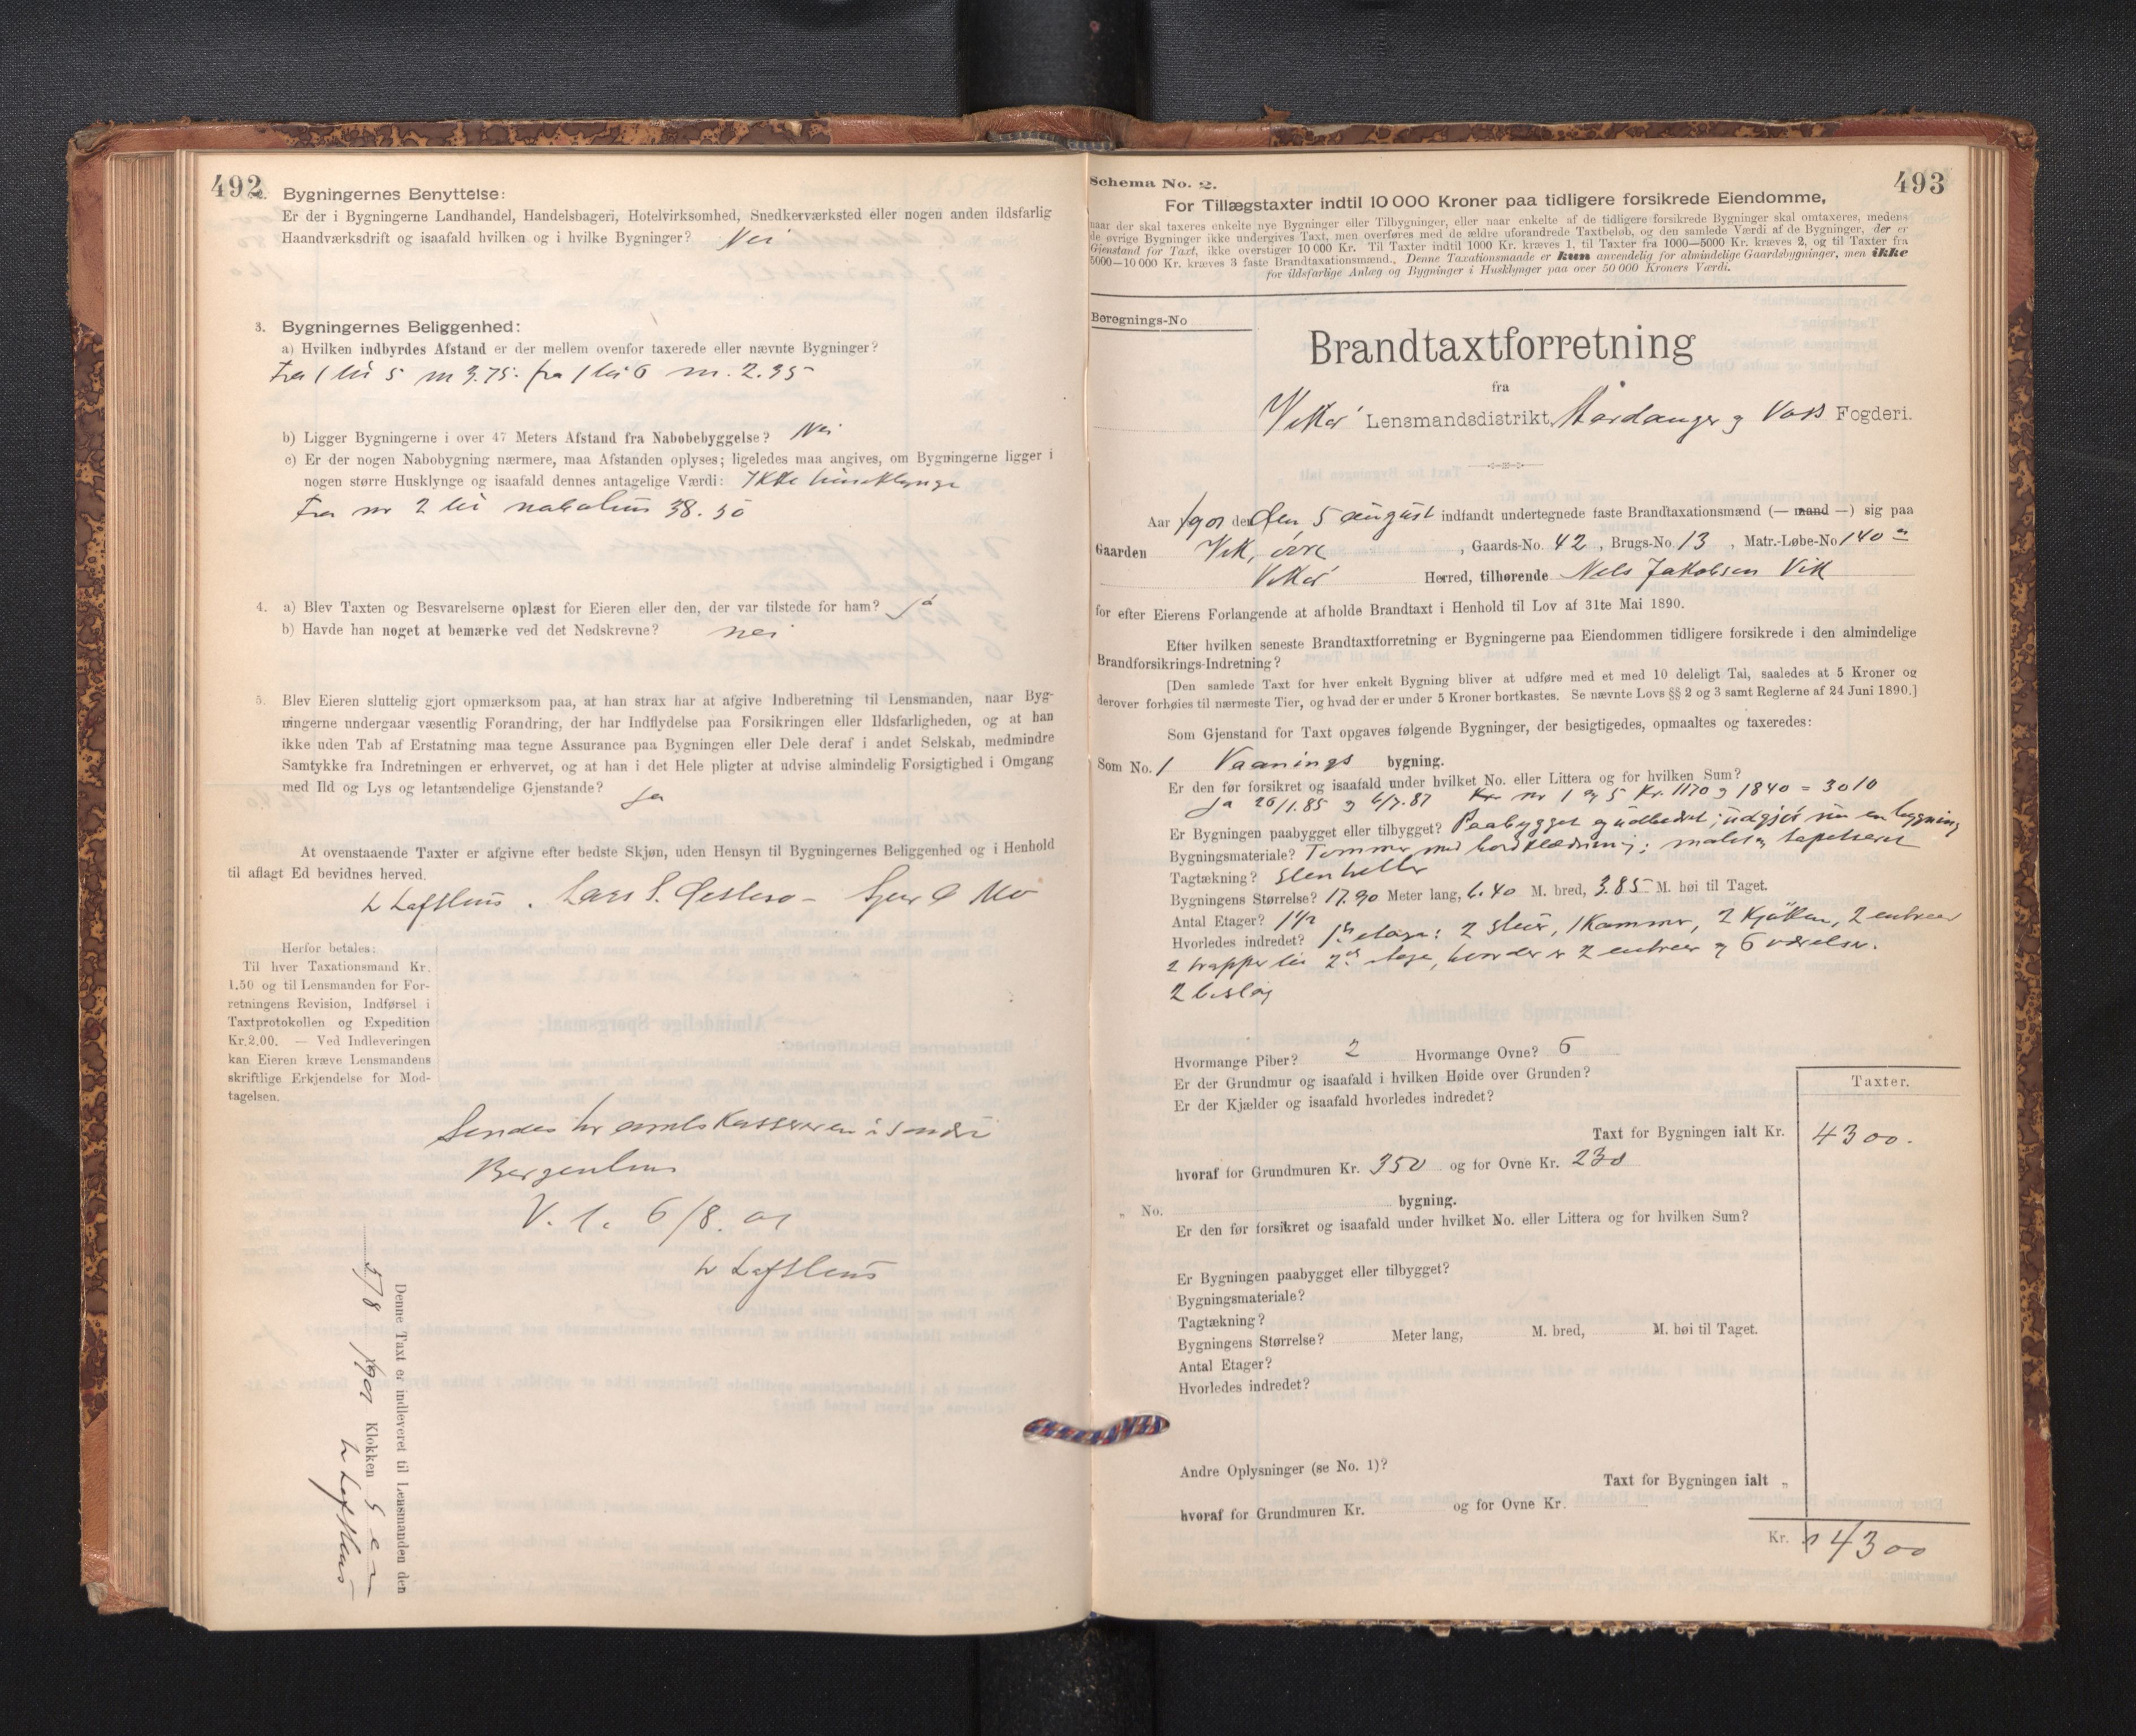 492
2. Bygningernes Benyttelse:
Er der i Bygningerne Landhandel, Handelsbageri, Hotelvirksomhed, Snedkerværksted eller nogen anden ildsfarlig
Haandværksdrift og isaafald hvilken og i hvilke Bygninger? Nei
3. Bygningernes Beliggenhed:
a) Hvilken indbyrdes Afstand er der mellem ovenfor taxerede eller nævnte Bygninger?
Fra 1 til 5 m 3.75. fra 1 til 6 m. 2.35
b) Ligger Bygningerne i over 47 Meters Afstand fra Nabobebyggelse? Nei
c) Er der nogen Nabobygning nærmere, maa Afstanden oplyses; ligeledes maa angives, om Bygningerne ligger i
nogen større Husklynge og isaafald dennes antagelige Værdi: Ikke husklynge
Fra nr 2 til nabohus 38.50
4. a) Blev Taxten og Besvarelserne oplæst for Eieren eller den, der var tilstede for ham? Ja
b) Havde han noget at bemærke ved det Nedskrevne? nei
5. Blev Eieren sluttelig gjort opmærksom paa, at han strax har at afgive Indberetning til Lensmanden, naar Byg-
ningerne undergaar væsentlig Forandring, der har Indflydelse paa Forsikringen eller Ildsfarligheden, og at han
ikke uden Tab af Erstatning maa tegne Assurance paa Bygningen eller Dele deraf i andet Selskab, medmindre
Samtykke fra Indretningen er erhvervet, og at han i det Hele pligter at udvise almindelig Forsigtighed i Omgang
med Ild og Lys og letantændelige Gjenstande? Ja
At ovenstaaende Taxter er afgivne efter bedste Skjøn, uden Hensyn til Bygningernes Beliggenhed og i Henhold
til aflagt Ed bevidnes herved.
L Lofthus. Lars S. Østese - Sjur O Mo
Herfor betales:
Til hver Taxationsmand Kr.
1,50 og til Lensmanden for For-
retningens Revision, Indførsel i
Taxtprotokollen og Expedition
Kr. 2,00. — Ved Indleveringen
kan Eieren kræve Lensmandens
skriftlige Erkjendelse for Mod-
tagelsen.
Sendes hr amtskassereren i Søndre
Bergenhus
V. l. 6/8. 01
L Lofthus
Denne Taxt er indleveret til Lensmanden den
5/8 1901 Klokken 5 em
L Lofthus
Schema No. 2.
493
For Tillægstaxter indtil 10 000 Kroner paa tidligere forsikrede Eiendomme,
naar der skal taxeres enkelte nye Bygninger eller Tilbygninger, eller naar enkelte af de tidligere forsikrede Bygninger skal omtaxeres, medens
de øvrige Bygninger ikke undergives Taxt, men overføres med de ældre uforandrede Taxtbeløb, og den samlede Værdi af de Bygninger, der er
Gjenstand for Taxt, ikke overstiger 10 000 Kr. Til Taxter indtil 1000 Kr. kræves 1, til Taxter fra 1000—5000 Kr. kræves 2, og til Taxter fra
5000—10 000 Kr. kræves 3 faste Brandtaxationsmænd. Denne Taxationsmaade er kun anvendelig for almindelige Gaardsbygninger, men ikke
for ildsfarlige Anlæg og Bygninger i Husklynger paa over 50 000 Kroners Værdi.
Beregnings-No
Brandtaxtforretning
fra
Vikør Lensmandsdistrikt, Hardanger og Voss Fogderi.
Aar 1901 den 5 august indfandt undertegnede faste Brandtaxationsmænd (— mand —) sig paa
Gaarden Vik, øvre, Gaards-No. 42, Brugs-No. 13, Matr.-Løbe-No 140
Vikør Herred, tilhørende Nels Jakobsen Vik
for efter Eierens Forlangende at afholde Brandtaxt i Henhold til Lov af 31te Mai 1890.
Efter hvilken seneste Brandtaxtforretning er Bygningerne paa Eiendommen tidligere forsikrede i den almindelige
Brandforsikrings-Indretning?
[Den samlede Taxt for hver enkelt Bygning bliver at udføre med et med 10 deleligt Tal, saaledes at 5 Kroner og
derover forhøies til nærmeste Tier, og hvad der er under 5 Kroner bortkastes. Se nævnte Lovs §§ 2 og 3 samt Reglerne af 24 Juni 1890.]
Som Gjenstand for Taxt opgaves følgende Bygninger, der besigtigedes, opmaaltes og taxeredes:
Som No. 1 Vaanings bygning.
Er den før forsikret og isaafald under hvilket No. eller Littera og for hvilken Sum?
Ja 26/1.85 og 4/7.87 nr 1 og 5 Kr. 1170 og 1840 = 3010
Er Bygningen paabygget eller tilbygget? Paabygget og udbedret; udgjør nu en bygning
Bygningsmateriale? Tømmer med bordklædning; malet og tapetseret
Tagtækning? Stenheller
Bygningens Størrelse? 17.90 Meter lang, 6.40 M. bred, 3.85 M. høi til Taget.
Antal Etager? 1 1/2
Hvorledes indredet? 1ste etage: 2 stuer, 1 kammer, 2 kjøkken, 2 entreer
2 trapper til 2den etage, hvor der er 2 entreer og 6 værelser.
2 bislag
Hvormange Piber? 2 Hvormange Ovne? 6
Er der Grundmur og isaafald i hvilken Høide over Grunden?
Er der Kjælder og isaafald hvorledes indredet?
Taxter.
Taxt for Bygningen ialt Kr. 4300.
hvoraf for Grundmuren Kr. 350 og for Ovne Kr. 230
„ No. bygning.
Er den før forsikret og isaafald under hvilket No. eller Littera og for hvilken Sum?
Er Bygningen paabygget eller tilbygget?
Bygningsmateriale?
Tagtækning?
Bygningens Størrelse? Meter lang, M. bred, M. høi til Taget.
Antal Etager?
Hvorledes indredet?
Andre Oplysninger (se No. 1)?
Taxt for Bygningen ialt „
hvoraf for Grundmuren Kr. og for Ovne Kr.
Kr. 4300